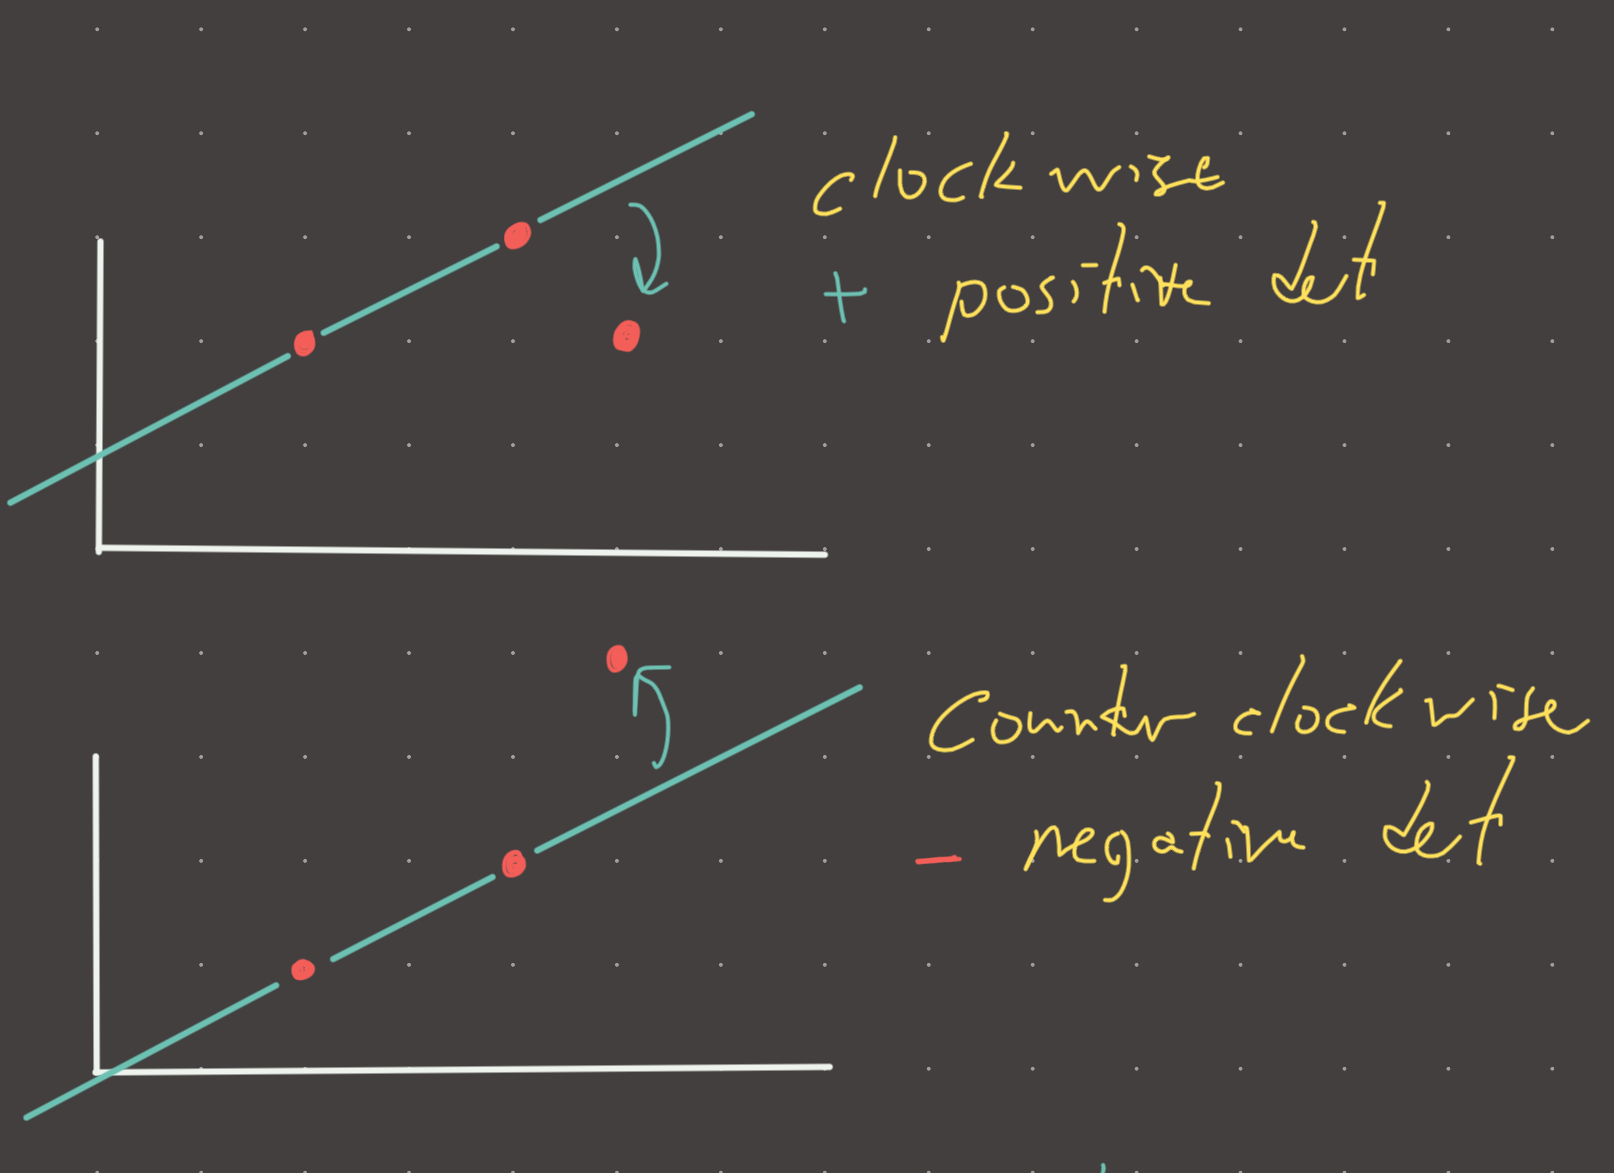 clockwise
+ positive det
Counter clockwise
- negative det